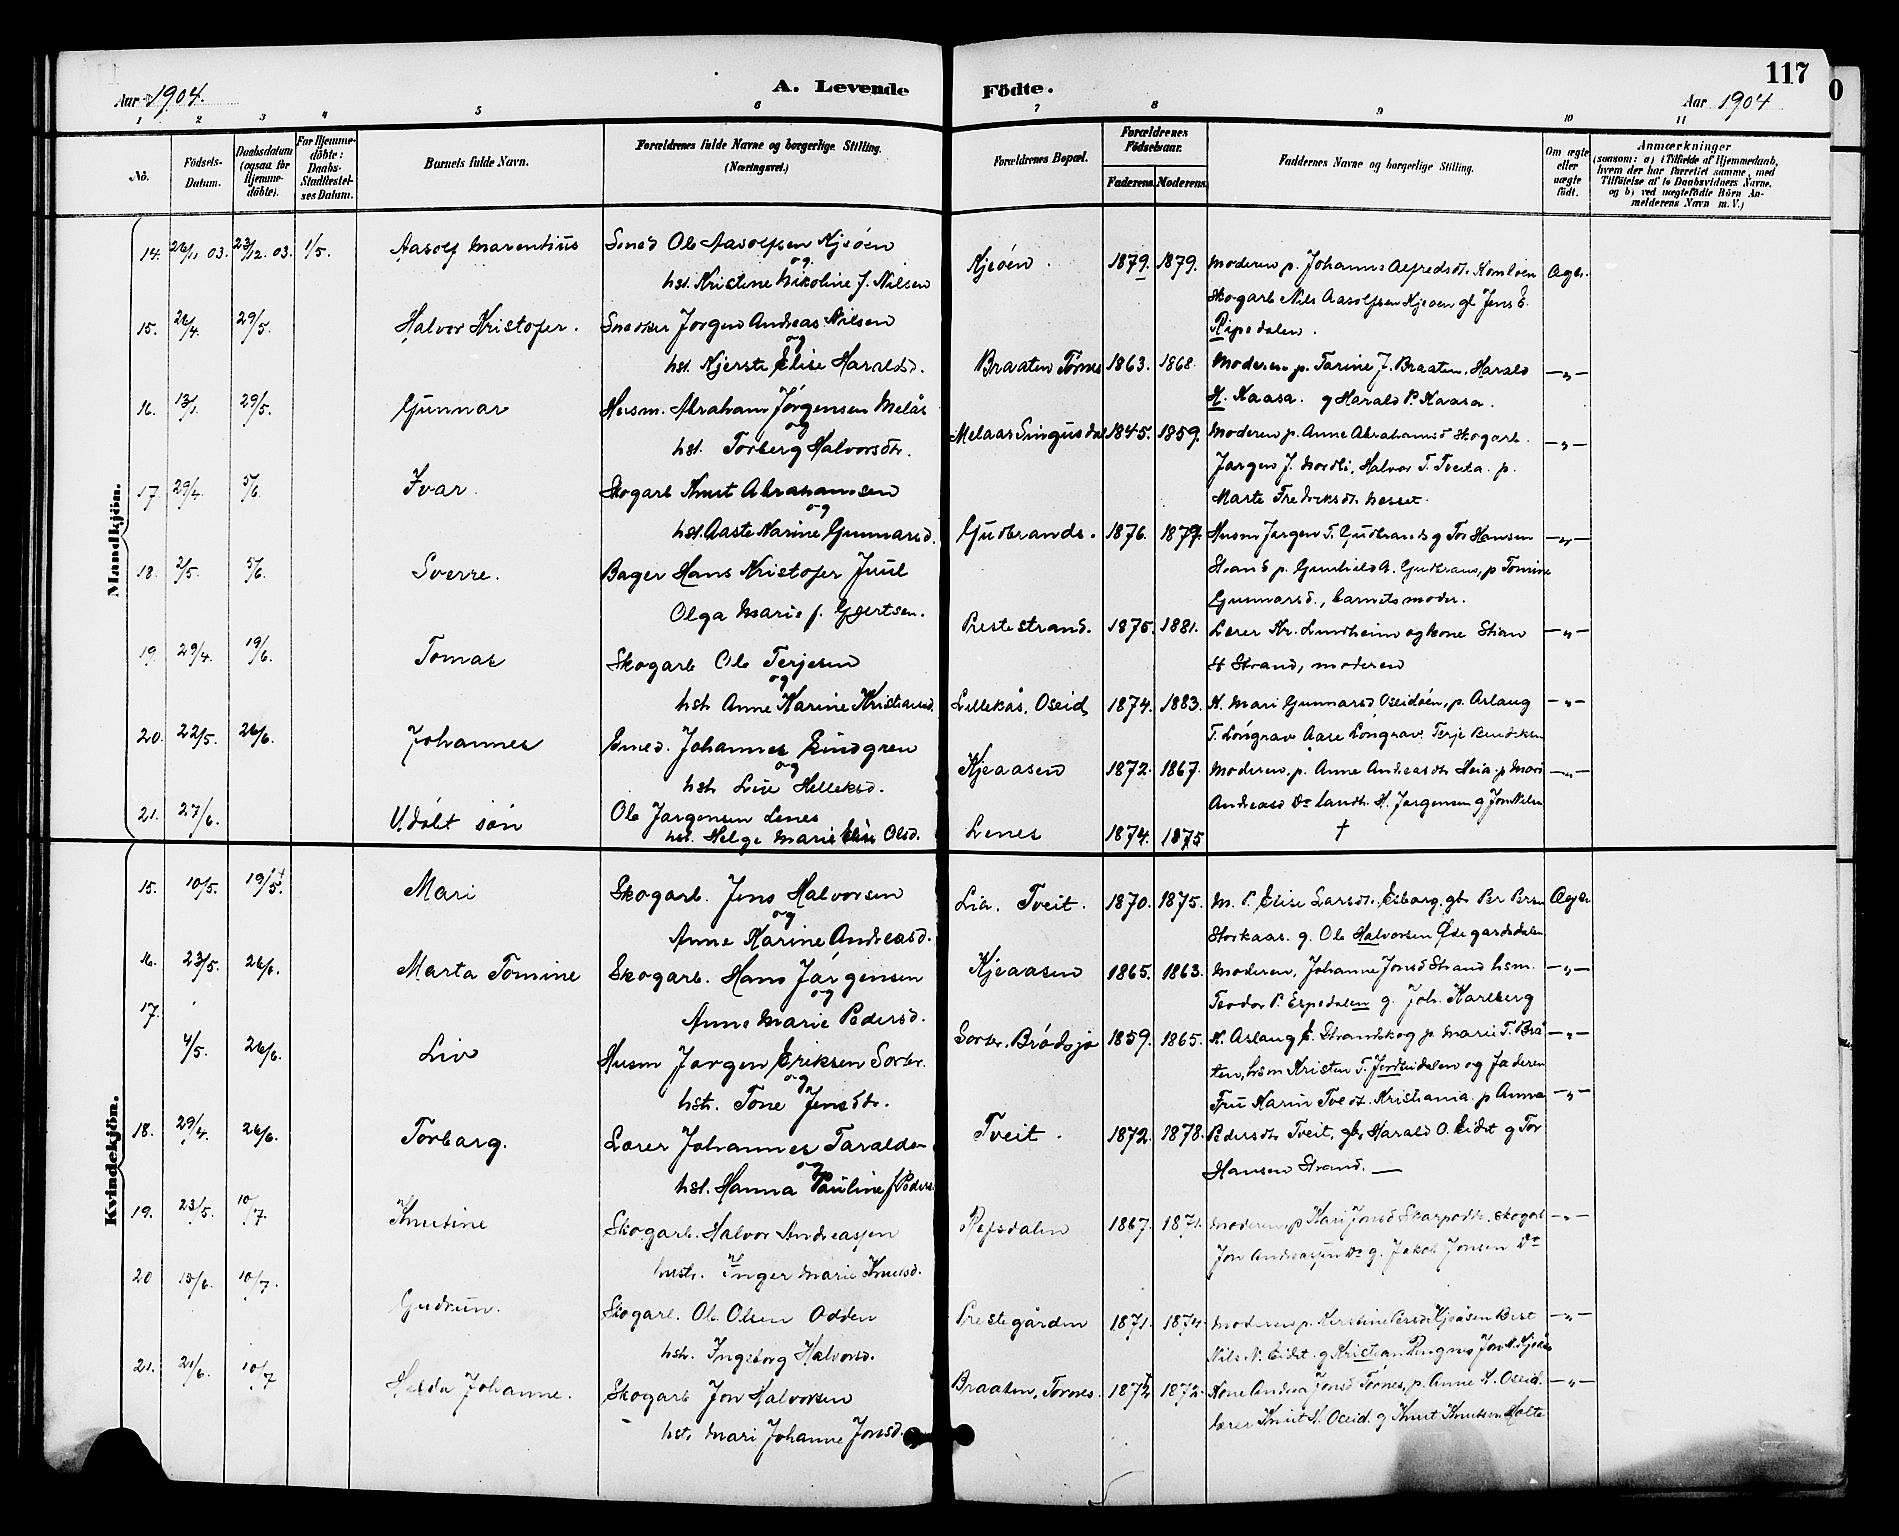 117
Aar 1904.
A. Levende Födte.
Aar 1904
1 2 3 4 5 6 7 8 9 10 11
No.
Födsels-Datum.
Daabsdatum (ogsaa for Hjemmedöbte).
For Hjemmedöbte: Daabs-Stadfæstelses Datum.
Barnets fulde Navn.
Forældrenes fulde Navne og borgerlige Stilling. (Næringsvei.)
Forældrenes Bopæl.
Forældrenes Födselsaar.
Faderens. Moderens.
Faddernes Navne og borgerlige Stilling.
Om ægte eller uægte födt.
Anmærkninger
(saasom: a) i Tilfælde af Hjemmedaab,
hvem der har forrettet samme, med
Tilföielse af to Daabsvidners Navne.
og b) ved uægtefödte Börn An-
melderens Navn m. V.)
Mandkjön.
14. 26/11 03. 23/12. 03. 1/5. Aasolf Marentius Smed Ole Aasolfsen Kjeöen
og
hst. Kristine Nikoline f. Nilsen
Kjeöen. 1879. 1879. Moderen p. Johanne Alfredsdt. Komloen Ægte.
Skogarb Nils Aasolfsen Kjeoen gb Jens E.
Ripedalen.
15. 26/4. 29/5. Halvor Kristofer. Snedker Jorgen Andreas Nilsen
og
hst. Kjerste Elise Haraldsd.
Braaten Tornes 1863. 1868. Moderen p. Tarine J. Braaten. Harald —"—
H. Kaasa. g Harald P. Kaasa.
16. 13/1. 29/5. Gunnar Husm. Abraham Jörgensen Melås
og
hst. Torberg Halvorsdtr.
Melaas Singusdal 1845. 1859. Moderen p. Anne Abrahamsd Skogarb. —"—
Jørgen J. Nordli, Halvor T. Tveita. p.
Marte Fredriksdt. Nesset.
17. 29/4. 5/6. Ivar. Skogarb Knut Abrahamsen
og
hst. Aaste Karine Gunnarsd.
Gudbrands. 1876. 1877. Husm Jørgen T. Gudbrands g Tor Hansen —"—
Strand p. Gunhild A. Gudbrans, p Tomine
Gunnarsd., barnets moder.
18. 2/5. 5/6. Sverre. Bager Hans Kristofer Juul
Olga Marie f. Gjertsen.
Prestestrand. 1875. 1881. Lærer Kr. Lundheim og kone Stian —"—
St Strand, moderen
19. 29/4. 19/6. Tomas Skogarb Ole Terjesen
og
hst. Anne Karine Kristiansd.
Lillekås, Oseid 1874. 1883. K. Mari Gunnarsd Oseidöen, p. Aslaug —"—
T. Löngrav Aase Löngrav. Terje Bendiksen
20. 22/5. 26/6. Johannes Smed. Johannes Lindgren
og
hst. Live Helleksd.
Kjeaasen 1872. 1867. Moderen, p. Anne Andreasdtr Heia. p Mari —"—
Andreasd Do landh. H. Jørgensen g Jon Nilsen
21. 27/6. Udöbt sön Ole Jørgensen Lenes
hst. Helge Marie Elise Olsd.
Lenes 1874. 1875 †
Kvindekjön.
15. 10/5. 19/5. Mari Skogarb. Jens Halvorsen
og
Anne Karine Andreasd.
Lia. Tveit. 1870. 1875. M. P. Elise Larsdt. Esborg. gbr Per Persen Ægte
Storkaas. g. Ole Halvorsen Ödegardsdalen
16. 23/5. 26/6. Marta Tomine Skogarb. Hans Jörgensen
og
Anne Marie Pedersd.
Kjeaasen 1865. 1863. Moderen, Johanne Jonsd Strand hsm. —"—
Teodor P. Espedalen g. Joh. Karlberg
17. 4/5. 26/6. Liv Husm Jørgen Eriksen Sorbr.
og
hstr. Tone Jensdtr.
Sorbr. Brödsjö 1859. 1865. K. Aslaug E. Strandskog p Marie T. Brå —"—
ten, hsm Kristen T. Jordbudalen og faderen
18. 29/4. 26/6. Torbarg. Lærer Johannes Taraldsen
og
hst. Hanna Pauline f Peders.
Tveit. 1872. 1878. Fru Karin Tvedt. Kristiania p Anna —"—
Pedersdtr Tveit, gbr Harald O. Eidet g Tor
Hansen Strand. —
19. 23/5. 10/7. Knutine Skogarb. Halvor Andreassen
hustr. Inger Marie Knutsd.
Refsdalen 1867. 1871. Moderen, p Kari Jonsd Skarpodtr. skogarb —"—
Jon Andreassen Do g. Jakob Jonsen Do
20 15/6. 10/7. Gudrun. Skogarb. Ole Olsen Odden
hstr. Ingeborg Halvorsd.
Prestegården 1871. 1874. Moderen p. Kerstine Persd Kjeåsen Best —"—
Nils N. Eidet. g Kristian Ringnes Jon N. Kjeås
21. 21/6. 10/7 Helda Johanne. Skogarb Jon Halvorsen
hst. Mari Johanne Jonsd.
Braaten, Tornes. 1872. 1872. Kone Andrea Jonsd Tornes, p. Anne K. Oseid. —"—
lærer Knut N. Oseid. g Knut Knutsen Holte